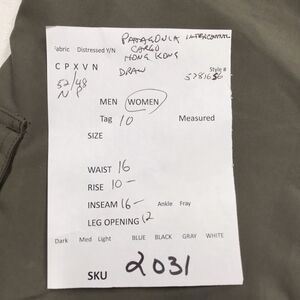 PATAGONIA INTERCONTIN
Fabric Distressed Y/N CARGO
HONG KONG
C P X V N DRAW Style #
52/48
N P
MEN WOMEN
Tag 10 Measured
SIZE
WAIST 16
RISE 10 -
INSEAM 16 - Ankle Fray
LEG OPENING 12
Dark Med Light BLUE BLACK GRAY WHITE
SKU 2031